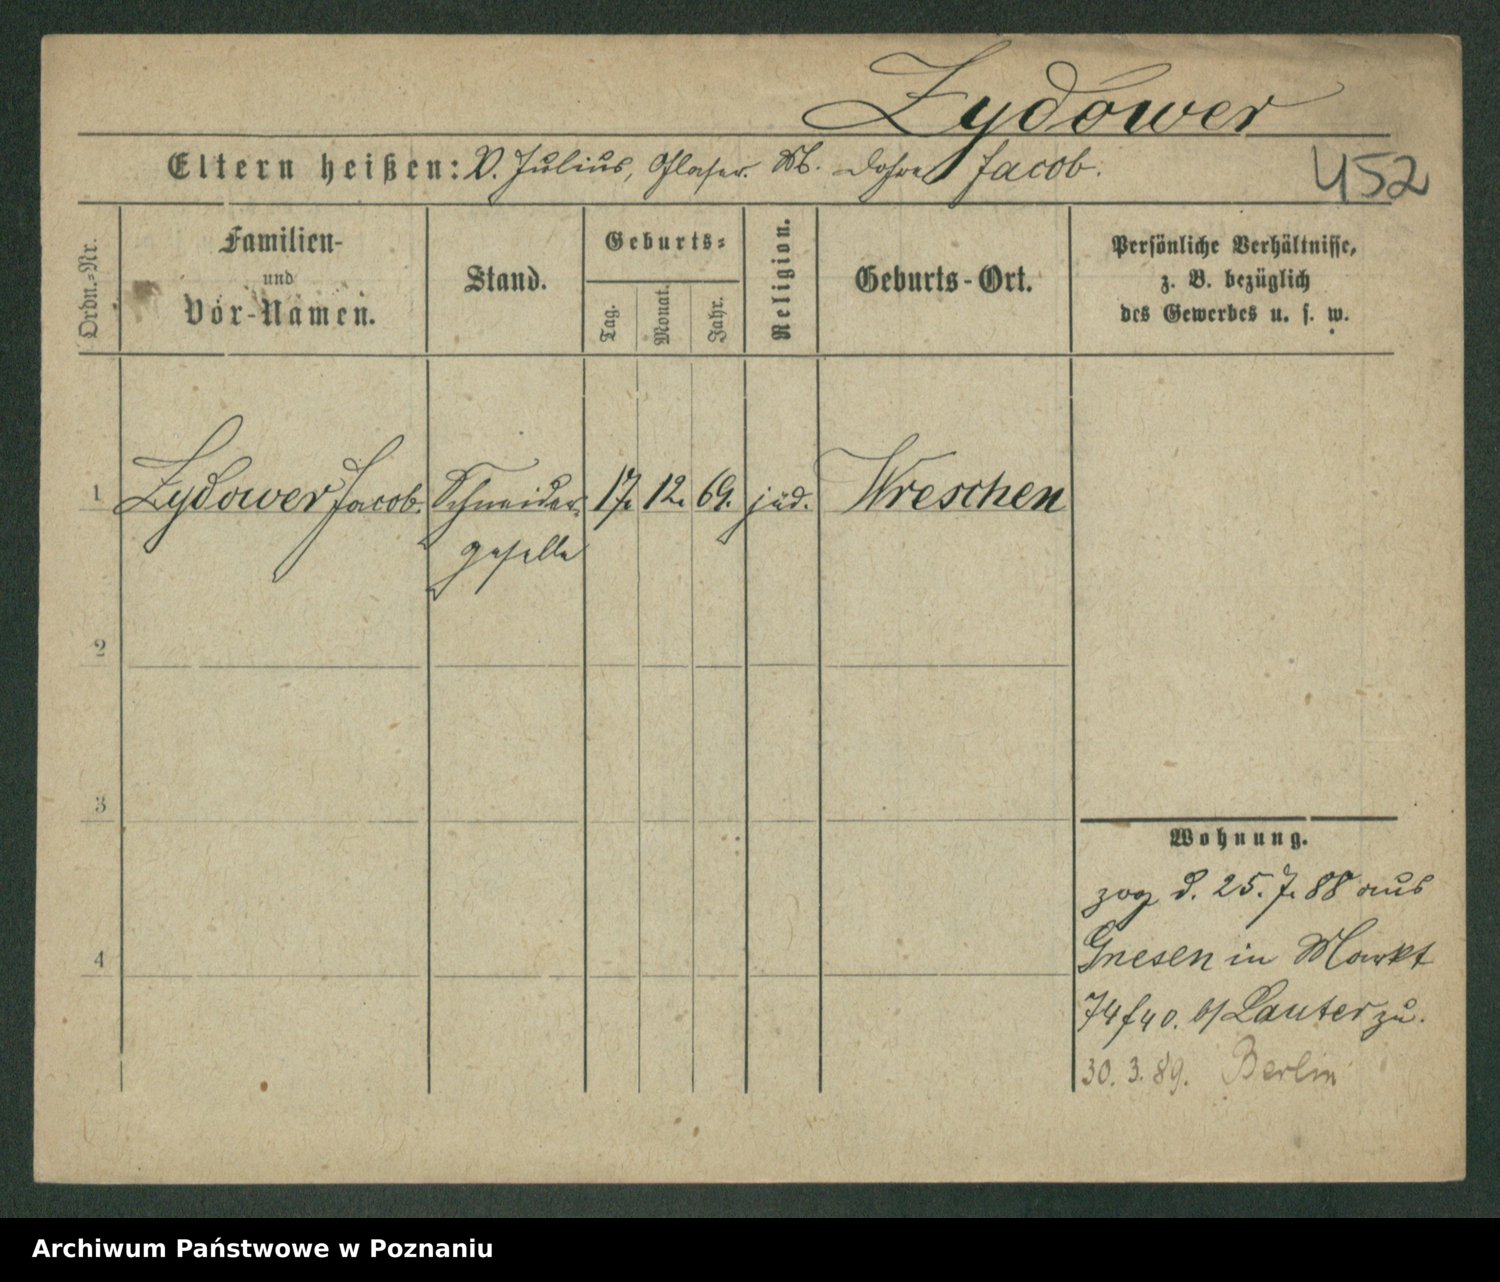 Zydower
Eltern heißen: V. Julius, Glaser. M. Dohre Jacob.
452
Ordn.-Nr.
Familien-
und
Vor-Namen.
Stand.
Geburts-
Tag.
Monat.
Jahr.
Religion.
Geburts-Ort.
Persönliche Verhältnisse,
z. B. bezüglich
des Gewerbes u. s. w.
1 Zydower Jacob. Schneider- 17. 12. 69. jüd. Wreschen
geselle
2
3
4
Wohnung.
zog d. 25. 7. 88 aus
Gnesen in Markt
74 b/ Lauter zu.
30. 3. 89. Berlin
Archiwum Państwowe w Poznaniu